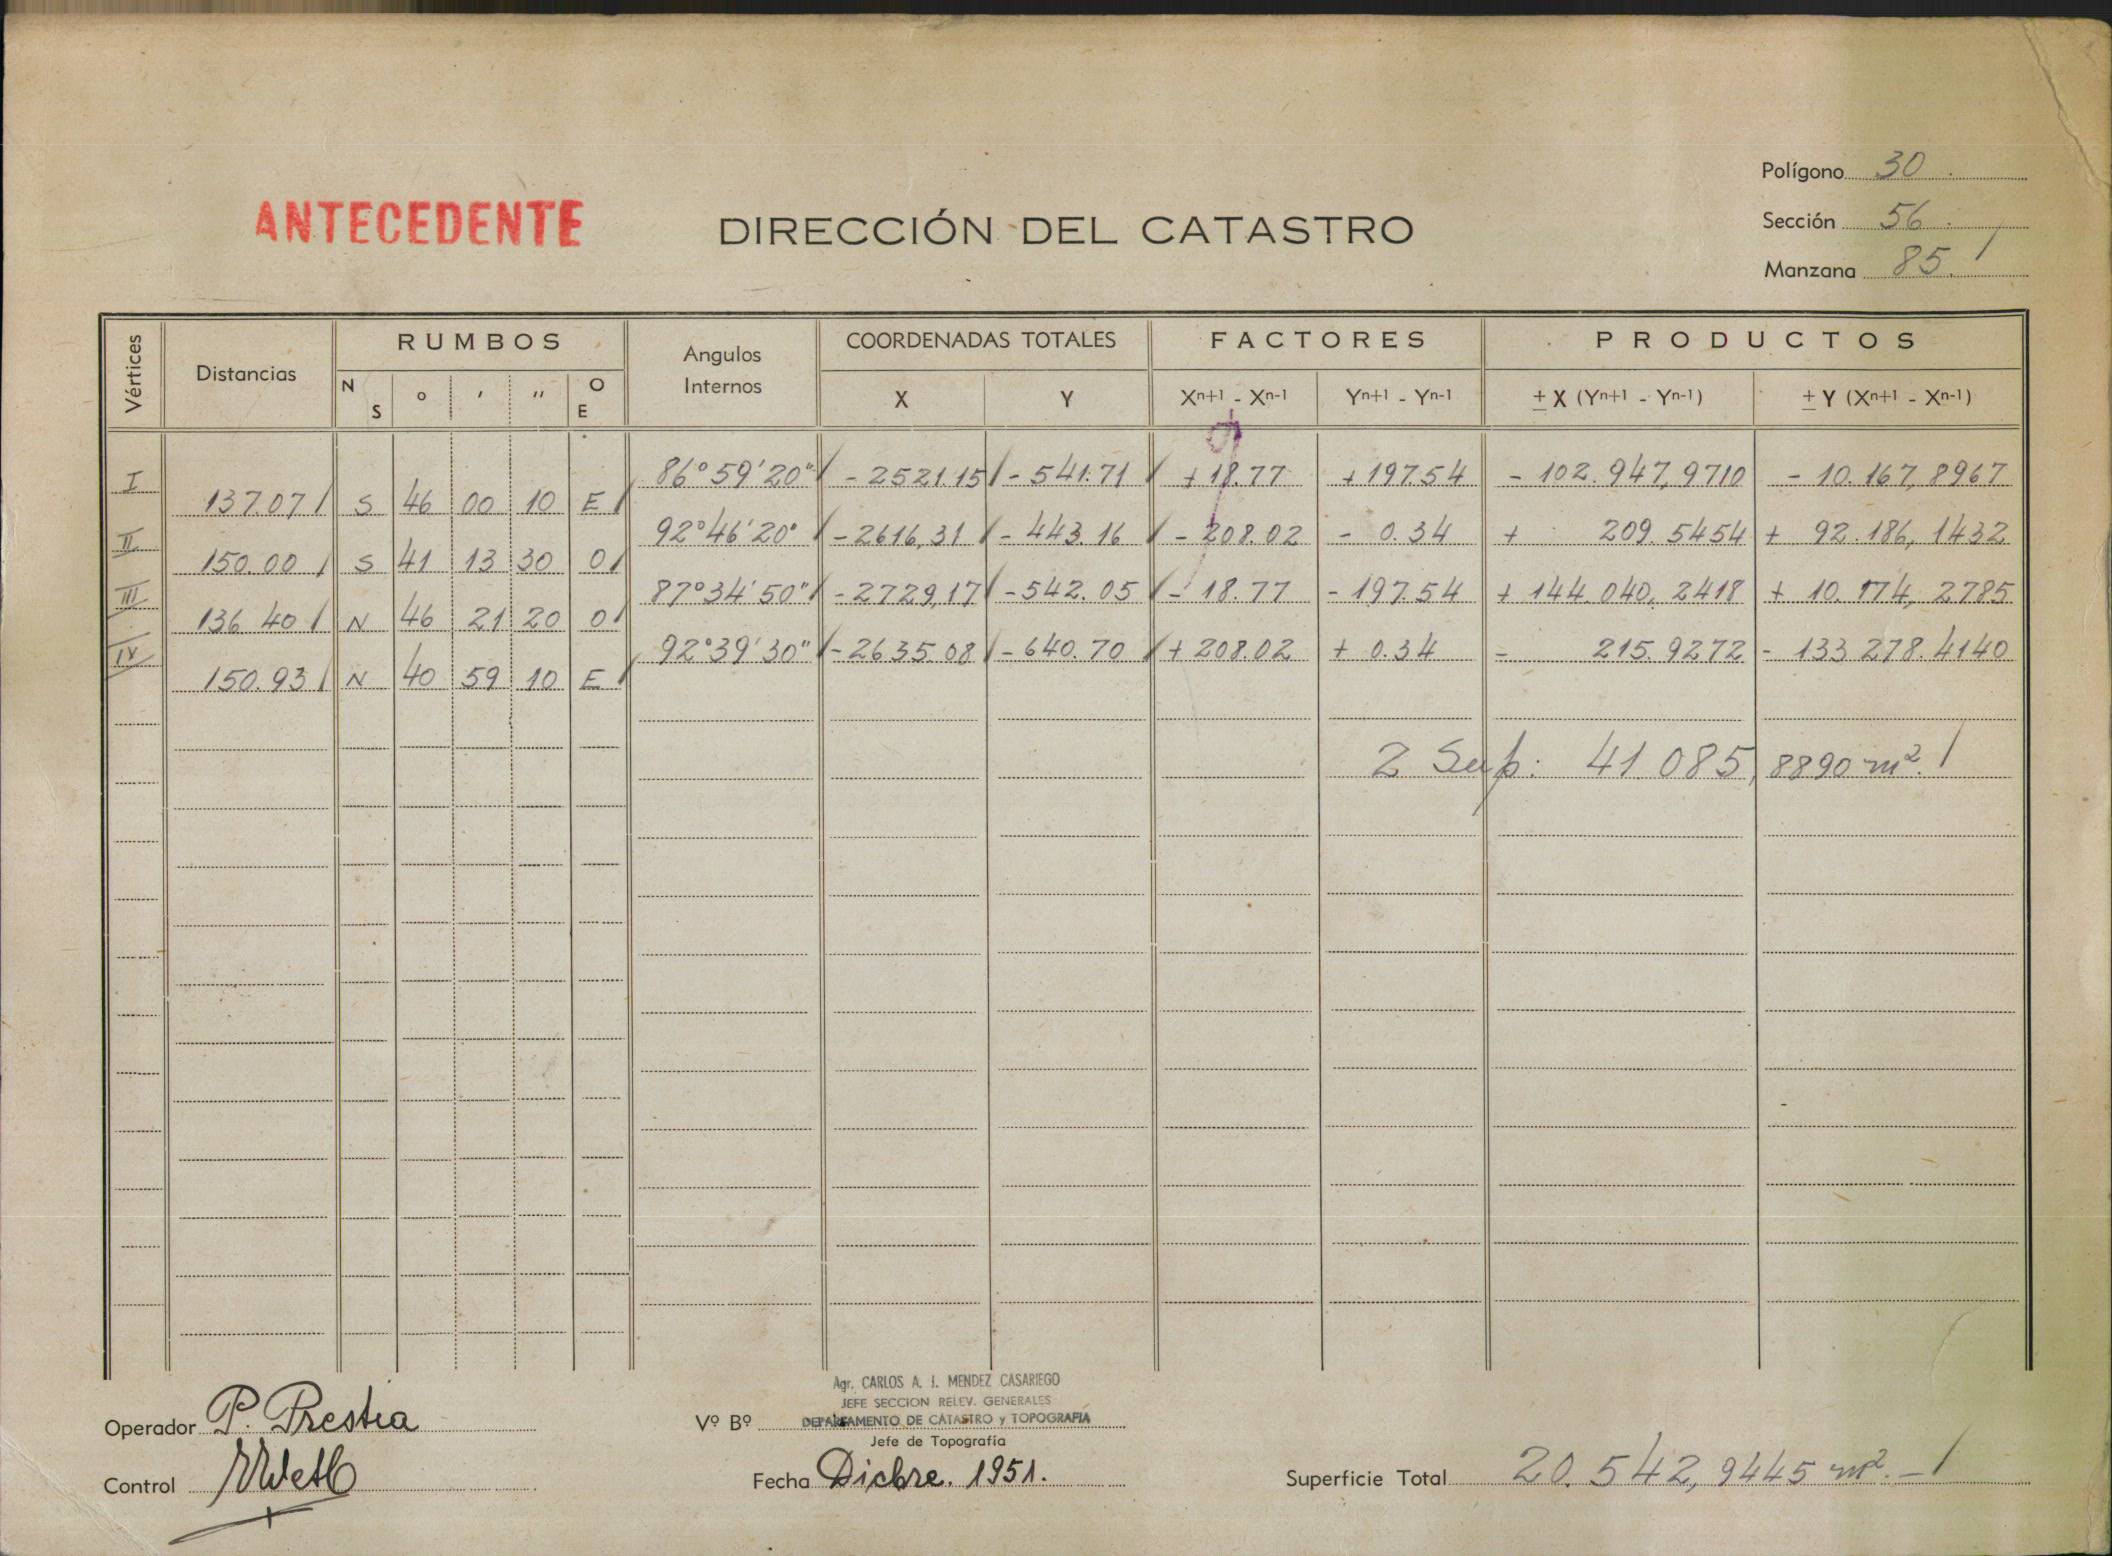 Polígono 30.
ANTECEDENTE
DIRECCIÓN DEL CATASTRO
Sección 56.
Manzana 85. /
Vértices Distancias RUMBOS Angulos Internos COORDENADAS TOTALES FACTORES PRODUCTOS
N S ° ' " O E X Y Xn+1 - Xn-1 Yn+1 - Yn-1 ± X (Yn+1 - Yn-1) ± Y (Xn+1 - Xn-1)
I 86°59'20" / - 2521.15 / - 541.71 / + 18.77 + 197.54 - 102.947,9710 - 10.167,8967
137.07 / S 46 00 10 E /
II 92°46'20" / - 2616,31 / - 443.16 / - 208.02 - 0.34 + 209.5454 + 92.186,1432
150.00 / S 41 13 30 O /
III 87°34'50" / - 2729,17 / - 542.05 / - 18.77 - 197.54 + 144.040,2418 + 10.174,2785
136.40 / N 46 21 20 O /
IV 92°39'30" / - 2635.08 / - 640.70 / + 208.02 + 0.34 - 215.9272 - 133 278.4140
150.93 / N 40 59 10 E /
2 Sup: 41.085,8890 m². /
Agr. CARLOS A. J. MENDEZ CASARIEGO
JEFE SECCION RELEV. GENERALES
Operador P. Prestia Vº Bº DEPARTAMENTO DE CATASTRO y TOPOGRAFIA
Jefe de Topografía
Control Fecha Dicbre. 1951. Superficie Total 20.542,9445 m². - /